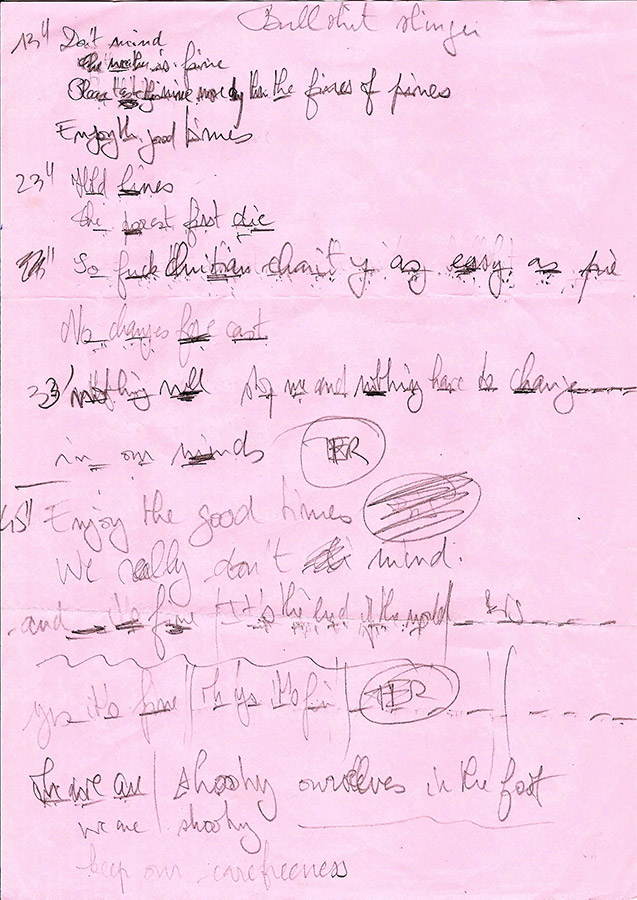 Bullshit slinger
13" Don't mind
the weather is fine
the fires of pines
Enjoy the good times
23" Hold lines
the poorest first die
So fuck Christian charity as easy as pie
No changes for cast
33' nothing will stop me and nothing have to change
in our minds TER
45" Enjoy the good times
We really don't mind.
and it's fine It's the end of the world
yes it's fine it's fin TER
we are shooting ourselves in the foot
we are shooting
keep our carefreeness